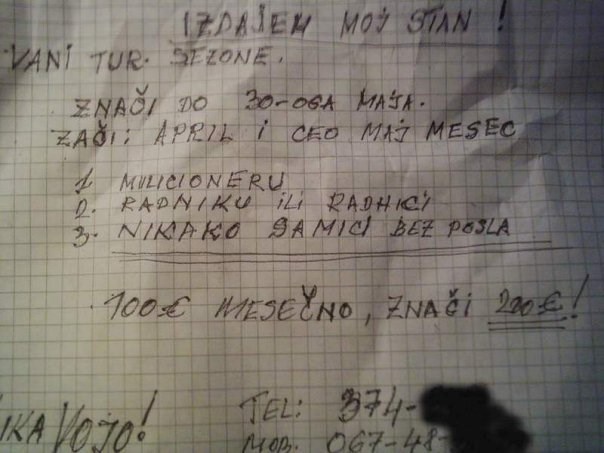 IZDAJEM MOJ STAN !
VANI TUR. SEZONE.
ZNAČI DO 30-OGA MAJA.
ZAČI: APRIL I CEO MAJ MESEC
1. MILICIONERU
2. RADNIKU ILI RADNICI
3. NIKAKO DAMICI BEZ POSLA
100€ MESEČNO, ZNAČI 200€!
IKA VOJO!
TEL: 374-
MOB. 067-48-